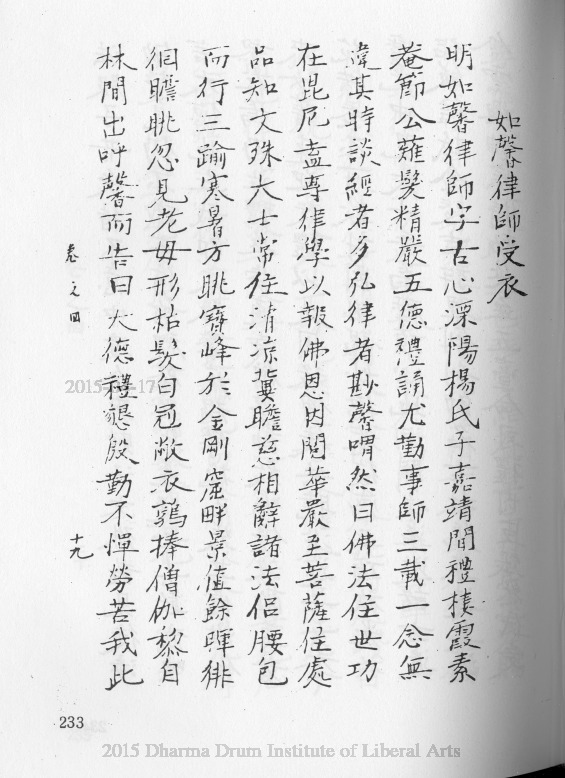 如馨律師受衣
明如馨律師字古心溧陽楊氏子嘉靖間禮棲霞素
菴節公薙髮精嚴五德禮誦尤勤事師三載一念無
違其時談經者多弘律者尠馨喟然曰佛法住世功
在毘尼盍專律學以報佛恩因閱華嚴至菩薩住處
品知文殊大士常住清凉冀瞻慈相辭諸法侶腰包
而行三踰寒暑方眺寶峰於金剛窟畔景值餘暉徘
徊瞻眺忽見老母形枯髮白冠敝衣鶉捧僧伽黎自
林間出呼馨而告曰大德禮懇殷勤不憚勞苦我此
卷之四
十九
233
2015 Dharma Drum Institute of Liberal Arts